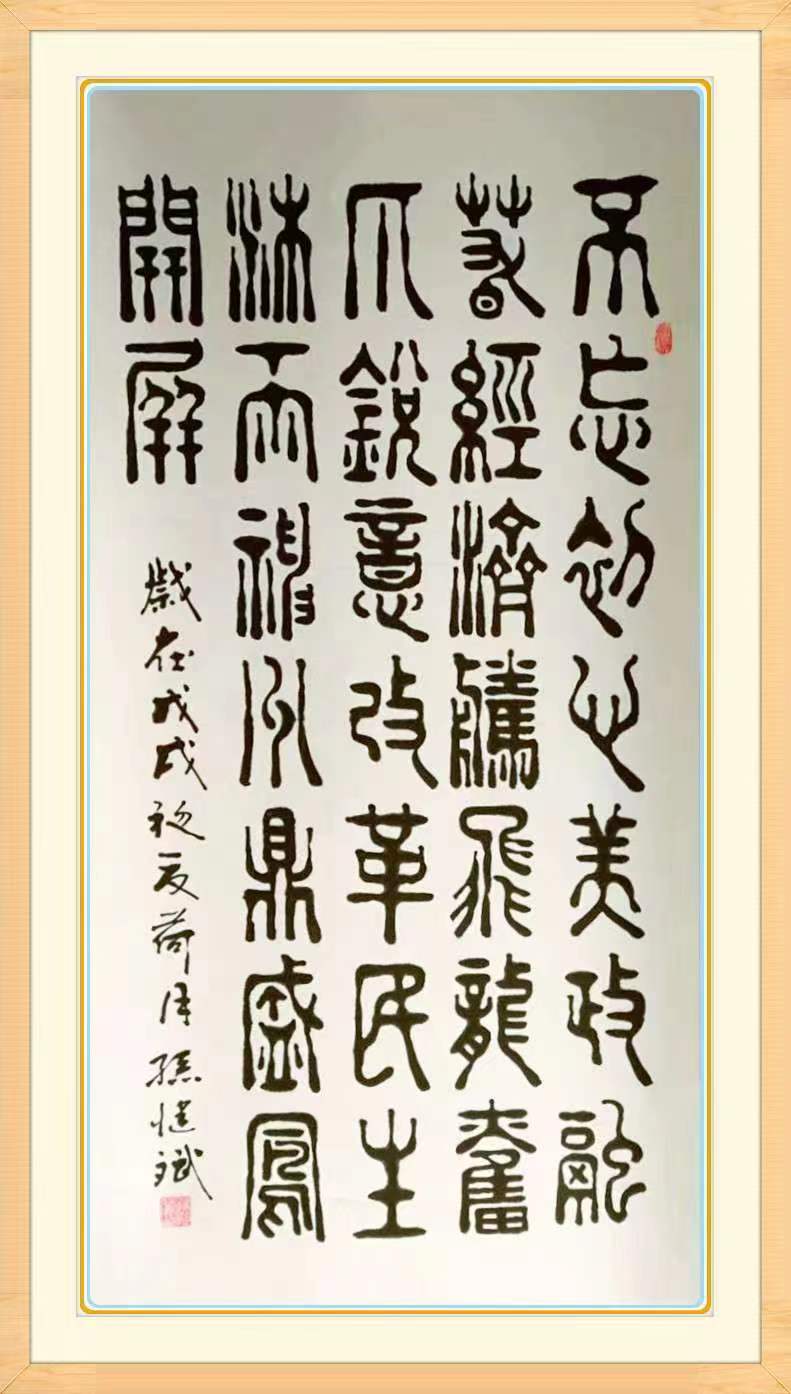 不忘初心美政融
春經濟騰飛龍奮
爪銳意改革民生
沐雨神州鼎盛鳳
開屏
歲在戊戌初夏荷月孫健斌